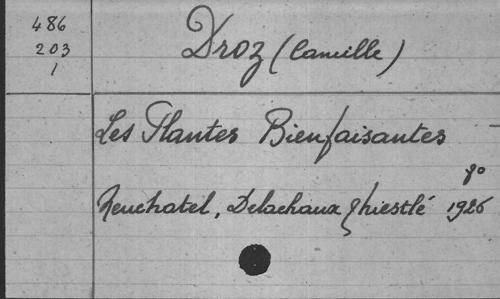 486
203
1
Droz (Camille)
Les Plantes Bienfaisantes
8º
Neuchatel, Delachaux & Niestlé 1926